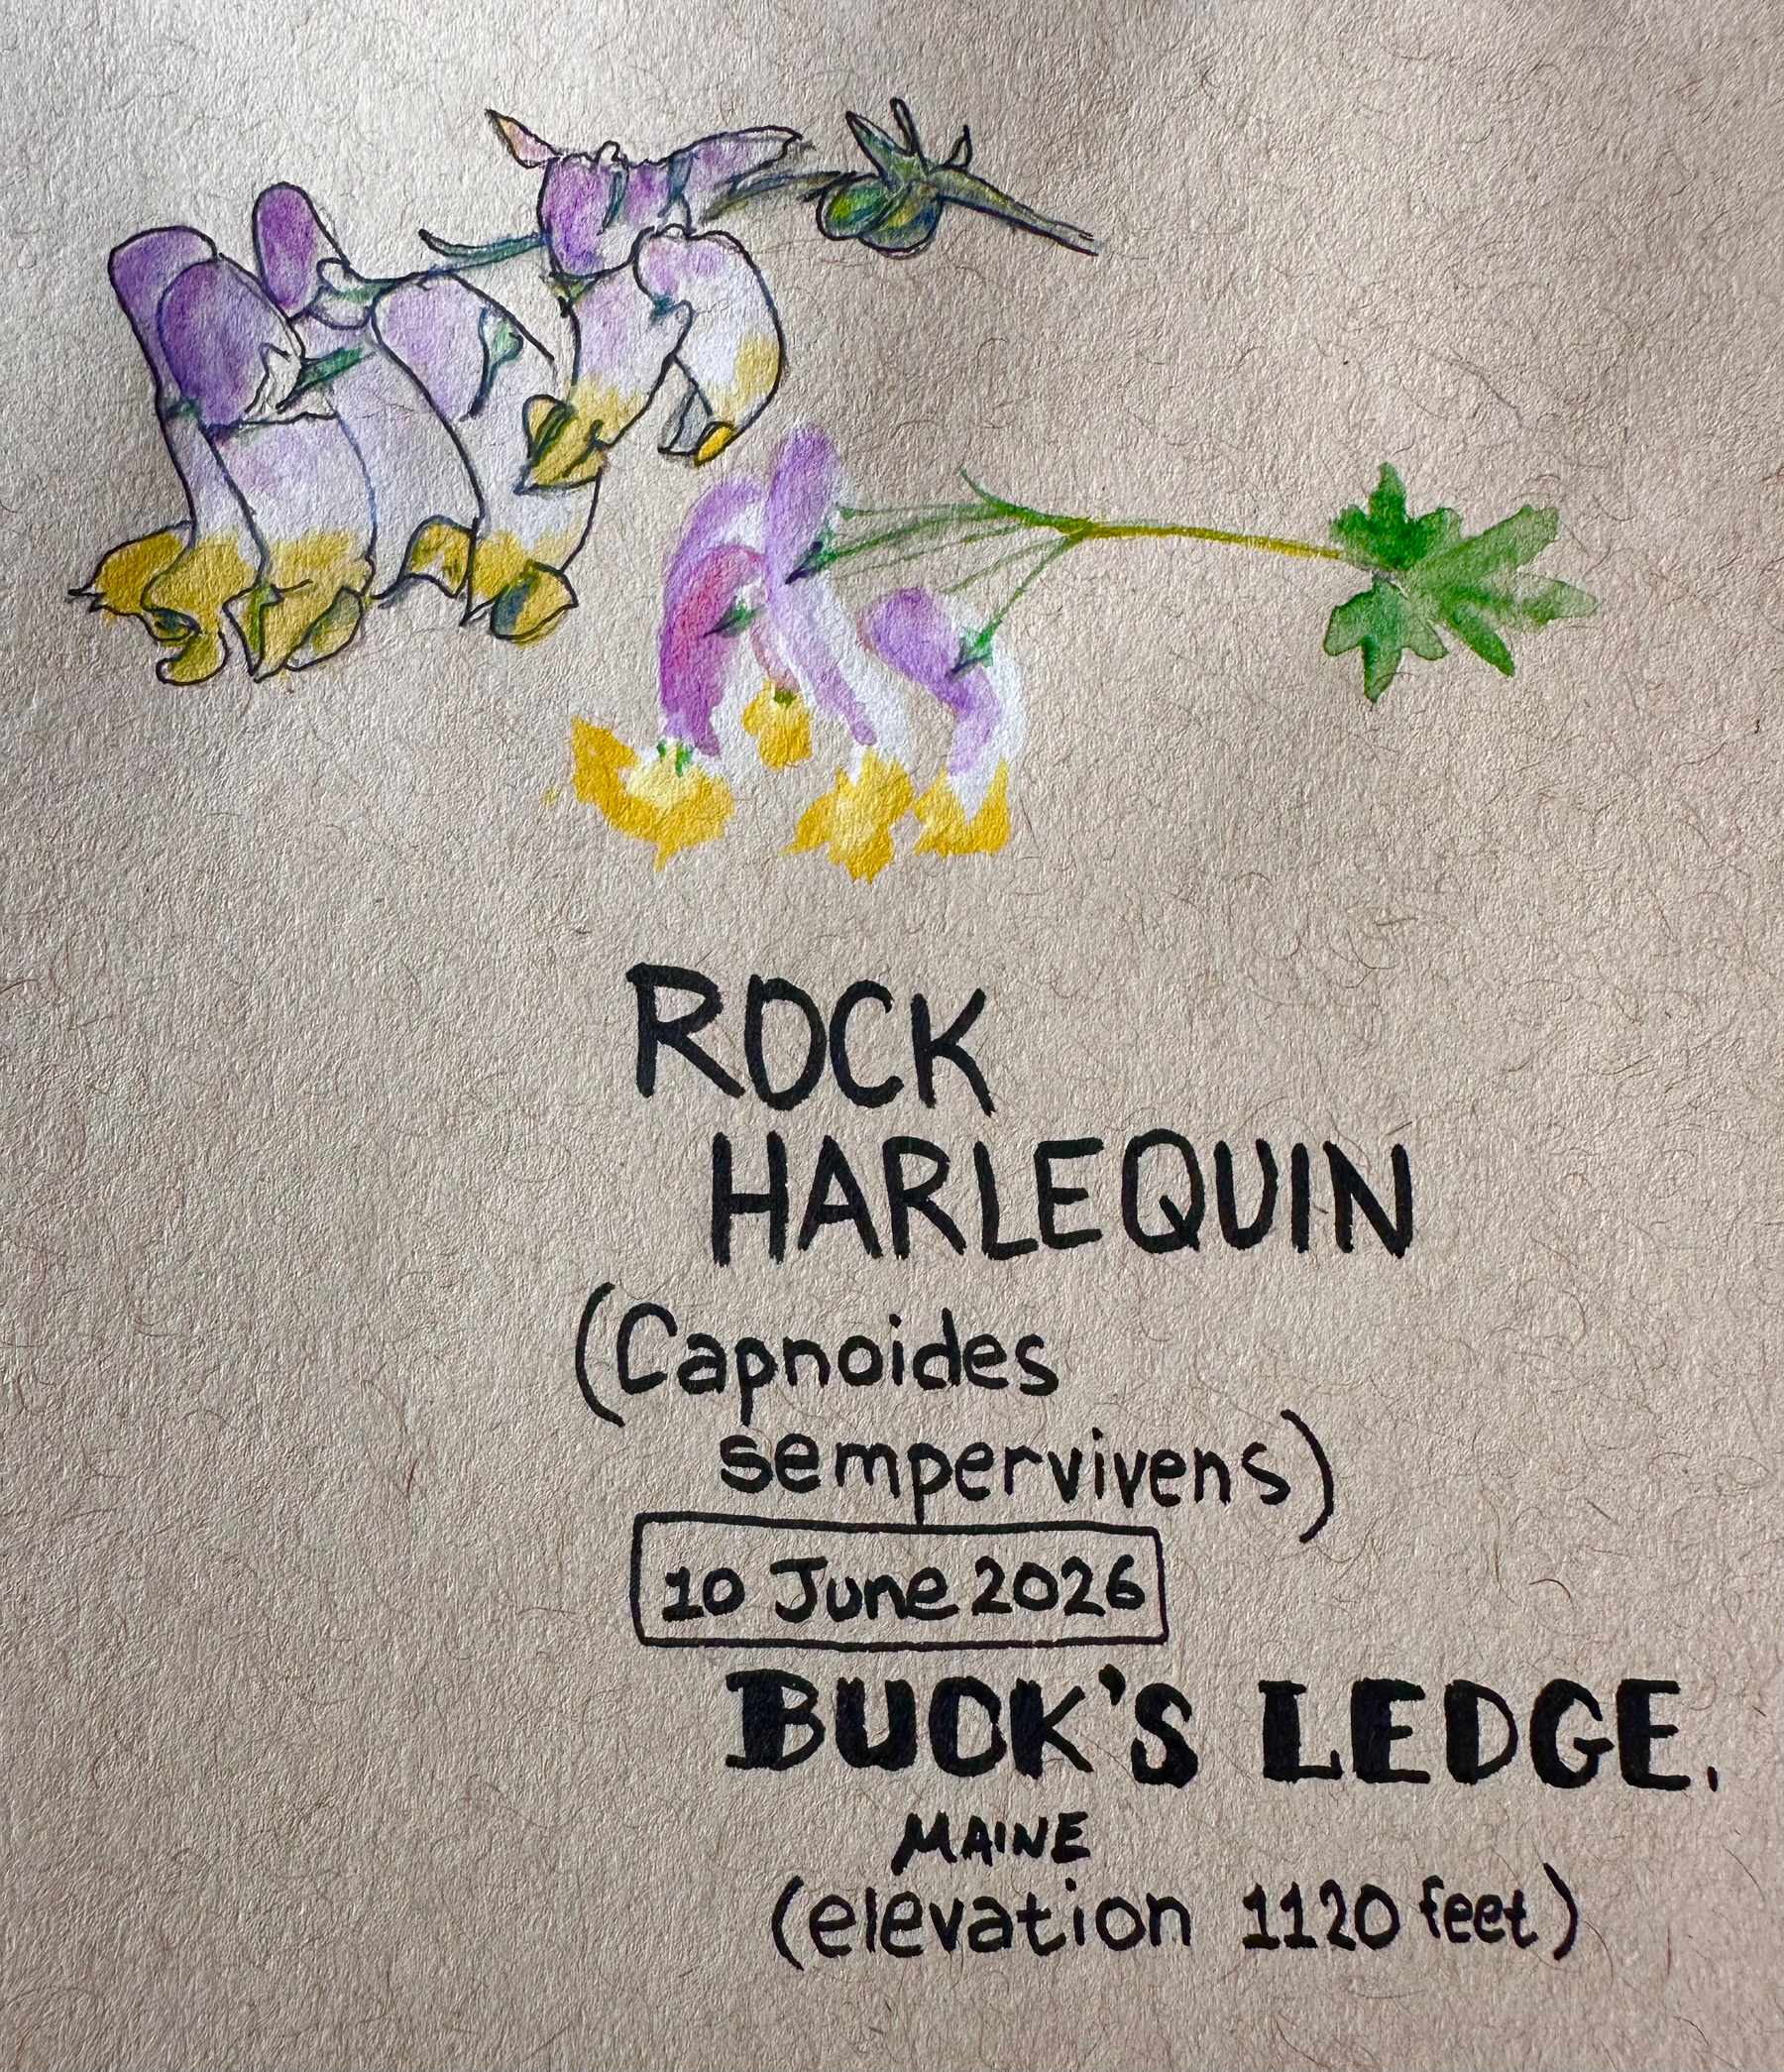 ROCK
HARLEQUIN
(Capnoides
sempervivens)
10 June 2026
BUCK'S LEDGE.
MAINE
(elevation 1120 feet)